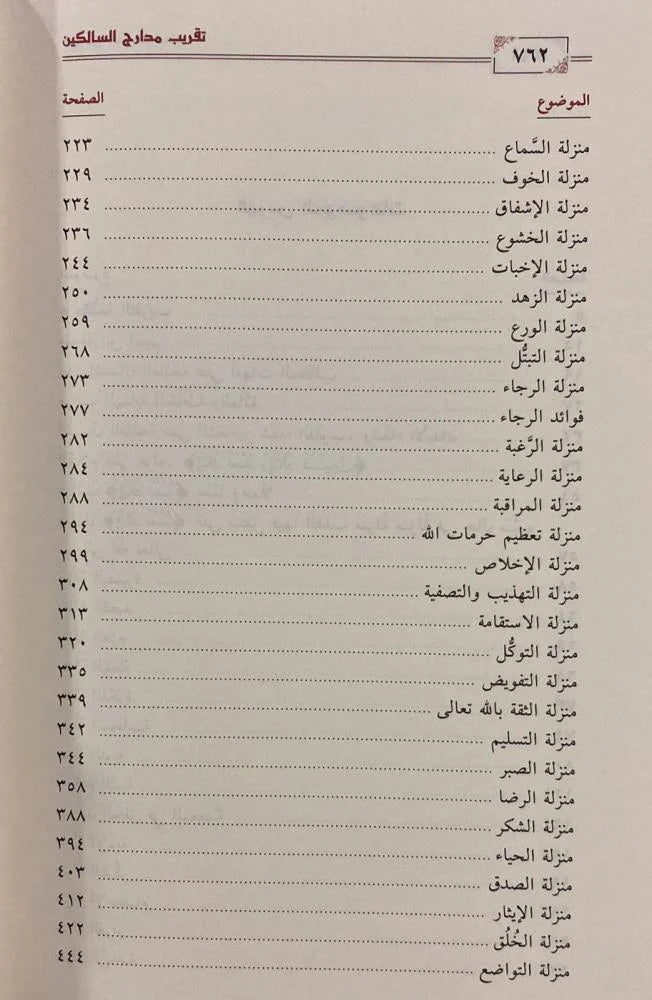 تقريب مدارج السالكين
٧٦٢
الموضوع الصفحة
منزلة السَّماع ٢٢٣
منزلة الخوف ٢٢٩
منزلة الإشفاق ٢٣٤
منزلة الخشوع ٢٣٦
منزلة الإخبات ٢٤٤
منزلة الزهد ٢٥٠
منزلة الورع ٢٥٩
منزلة التبتُّل ٢٦٨
منزلة الرجاء ٢٧٣
فوائد الرجاء ٢٧٧
منزلة الرَّغبة ٢٨٢
منزلة الرعاية ٢٨٤
منزلة المراقبة ٢٨٨
منزلة تعظيم حرمات الله ٢٩٤
منزلة الإخلاص ٢٩٩
منزلة التهذيب والتصفية ٣٠٨
منزلة الاستقامة ٣١٣
منزلة التوكُّل ٣٢٠
منزلة التفويض ٣٣٥
منزلة الثقة بالله تعالى ٣٣٩
منزلة التسليم ٣٤٢
منزلة الصبر ٣٤٤
منزلة الرضا ٣٥٨
منزلة الشكر ٣٨٨
منزلة الحياء ٣٩٤
منزلة الصدق ٤٠٣
منزلة الإيثار ٤١٢
منزلة الخُلُق ٤٢٢
منزلة التواضع ٤٤٤